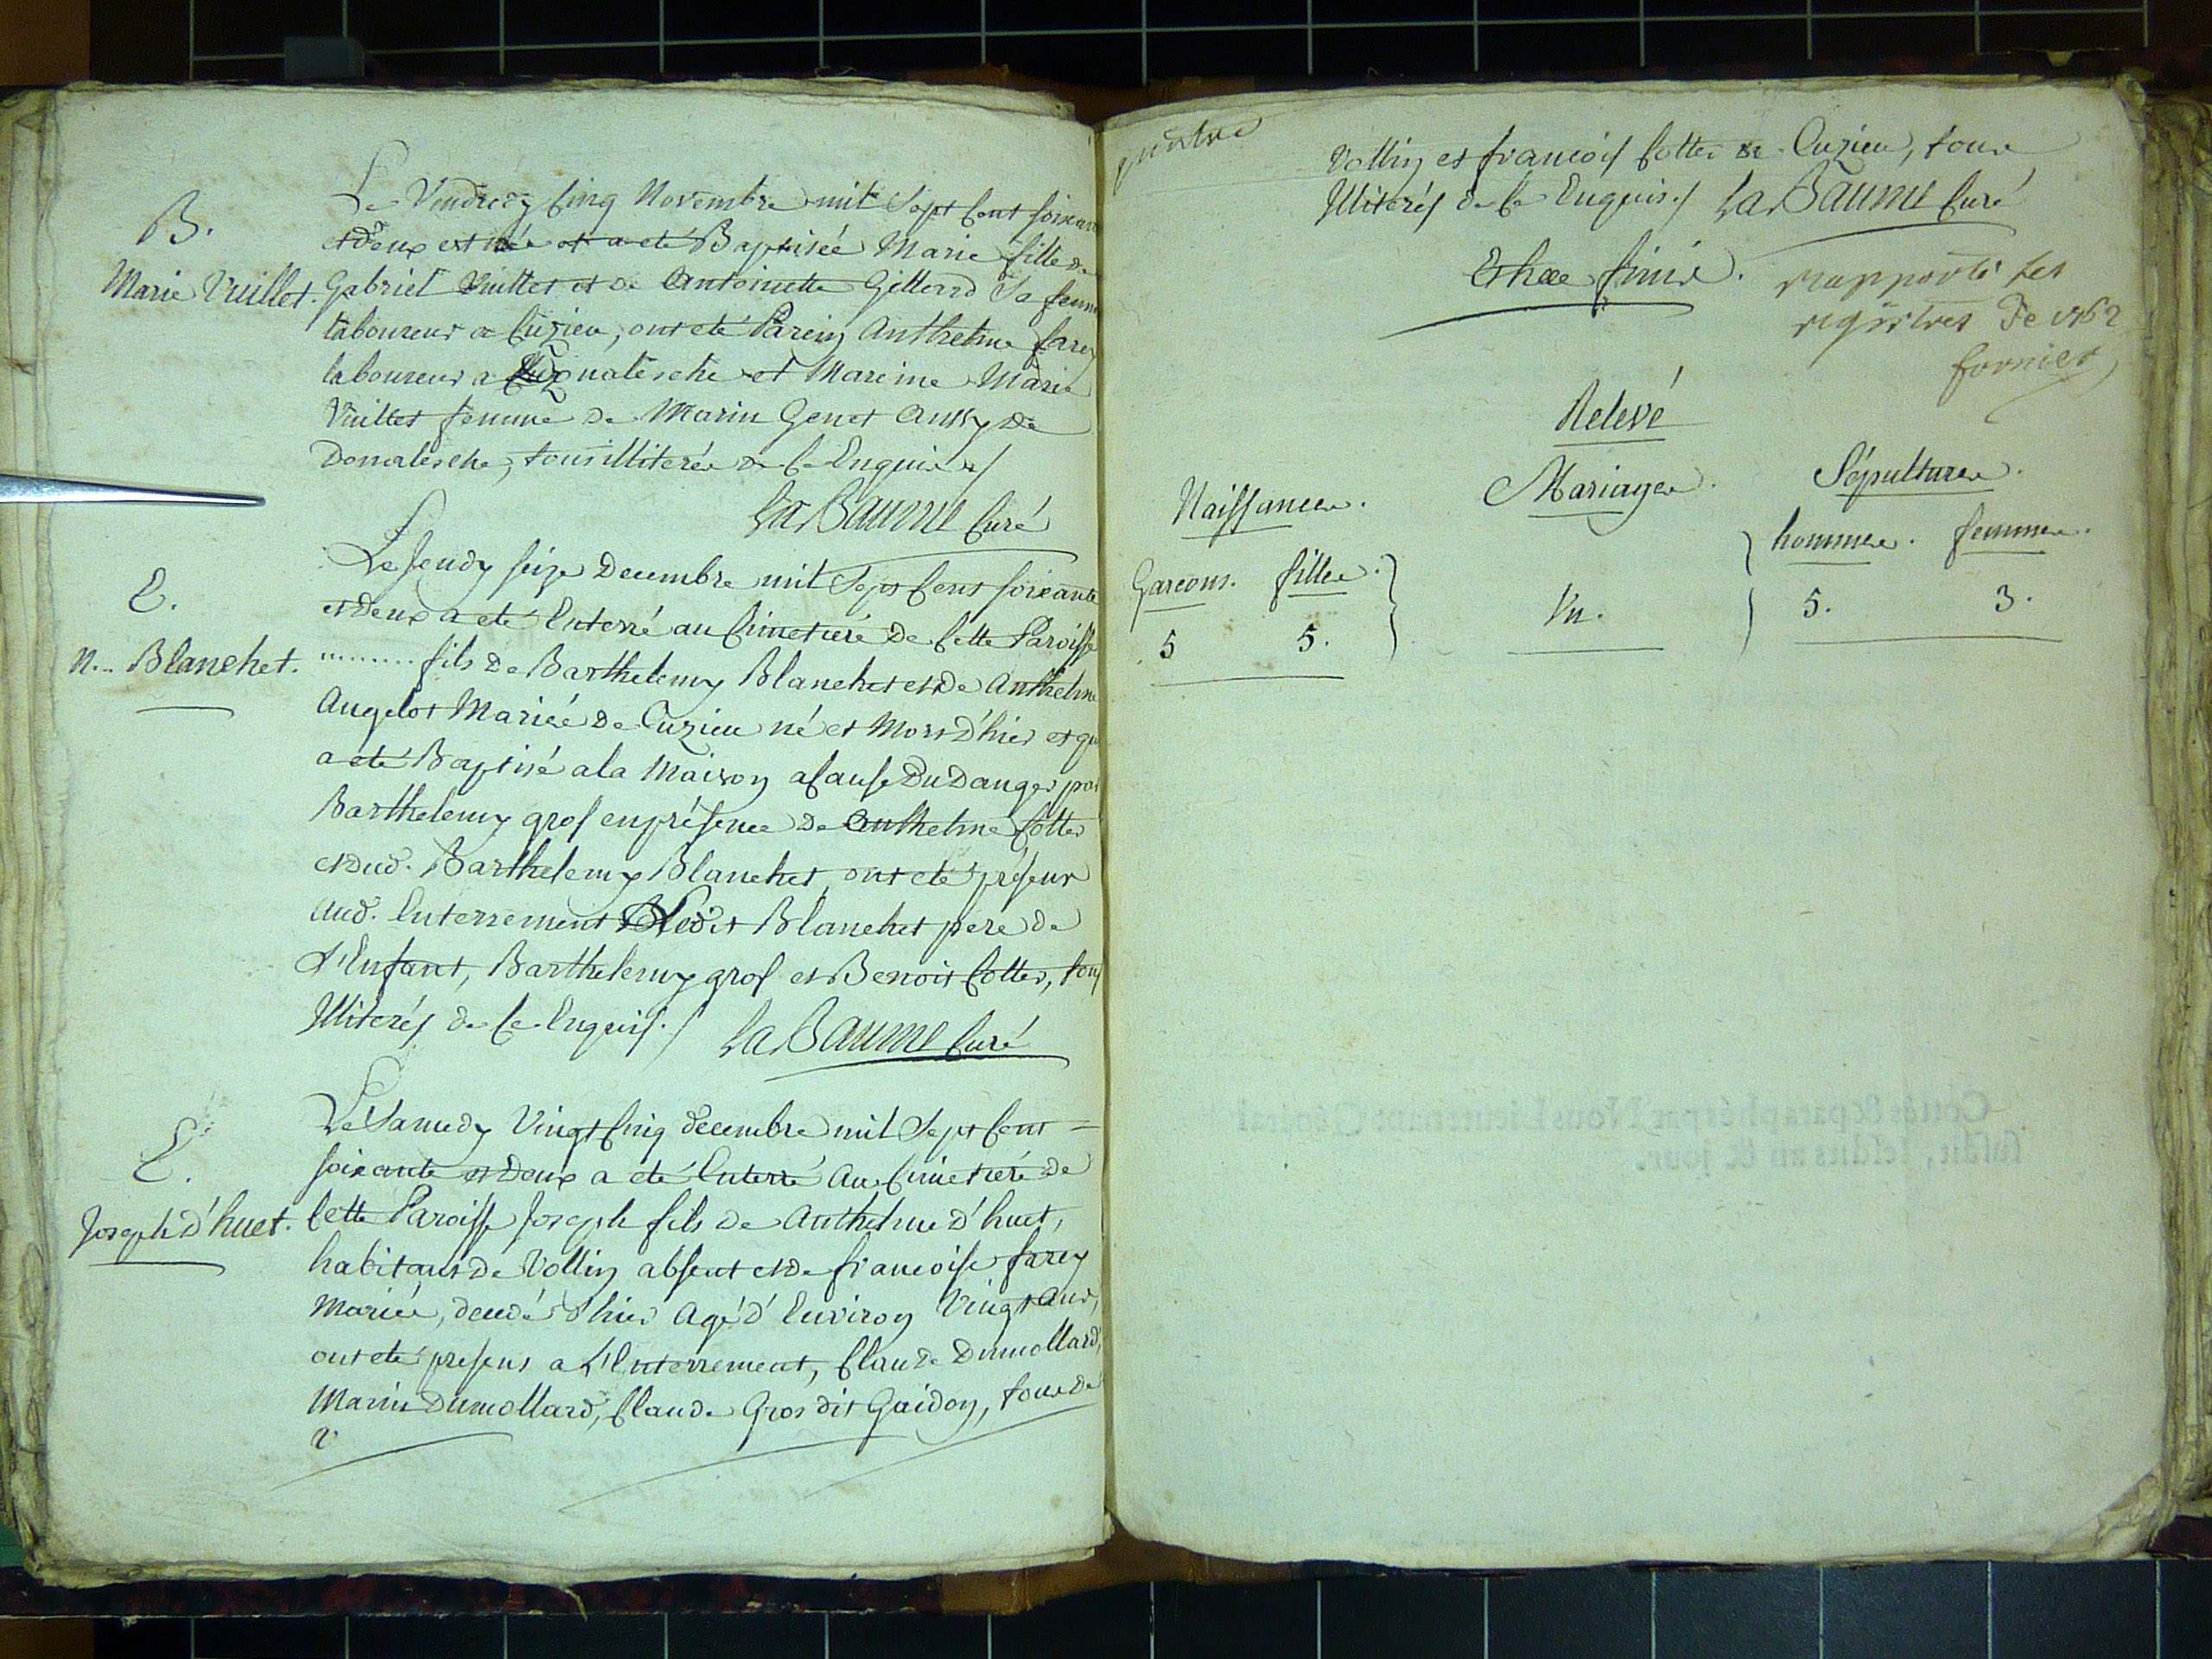 B.
Marie Vuillet.
Le Vendredy cinq Novembre mil Sept cent soixante
et deux est née et a eté Baptisée Marie fille de
Gabriel Vuillet et de Antoinette Gillard Sa femme
laboureur a Cuzieu, ont eté Parein Anthelme farey
laboureur a Donalesche et Mareine Marie
Vuillet femme de Marin Genet aussy de
Donalesche, tous illiterés de ce Enquis ./
La Baume Curé
E.
N... Blanchet.
Le Jeudy seize Decembre mil Sept Cens soixante
et deux a eté Enterré au Cimetiere de Cette Paroisse
......... fils de Barthelemy Blanchet et de Anthelme
Angelot Mariée de Cuzieu né et Mort d'hier et qui
a eté Baptisé a la Maison a Cause Du Danger par
Barthelemy gros en présence de Anthelme Cottes
et dud. Barthelemy Blanchet, ont eté présens
aud. Enterrement Ledit Blanchet pere de
L'Enfant, Barthelemy gros et Benoit Cottes, tous
Illiterés de Ce Enquis ./ La Baume Curé
E.
Joseph d'huet.
Le Samedy Vingt Cinq decembre mil Sept Cent =
soixante et Deux a eté Enterré au Cimetiere de
Cette Paroisse Joseph fils de Anthelme d'huet,
habitant de Vollin absent et de francoise farey
Mariée, decedé d'hier Agé d'Environ Vingt Ans,
ont eté presens a L'Enterrement, Claude Dumollard,
Marin Dumollard, Claude Gros dit Gaidon, tous de
V
quatre
Vollin et francois Cottes de Cuzieu, tous
Illiterés de Ce Enquis ./ La Baume Curé
rapporté les
registres De 1762
fornier
Relevé
Naissances. Mariages. Sépultures.
Garcons. filles. hommes. femmes.
5 5. Un. 5. 3.